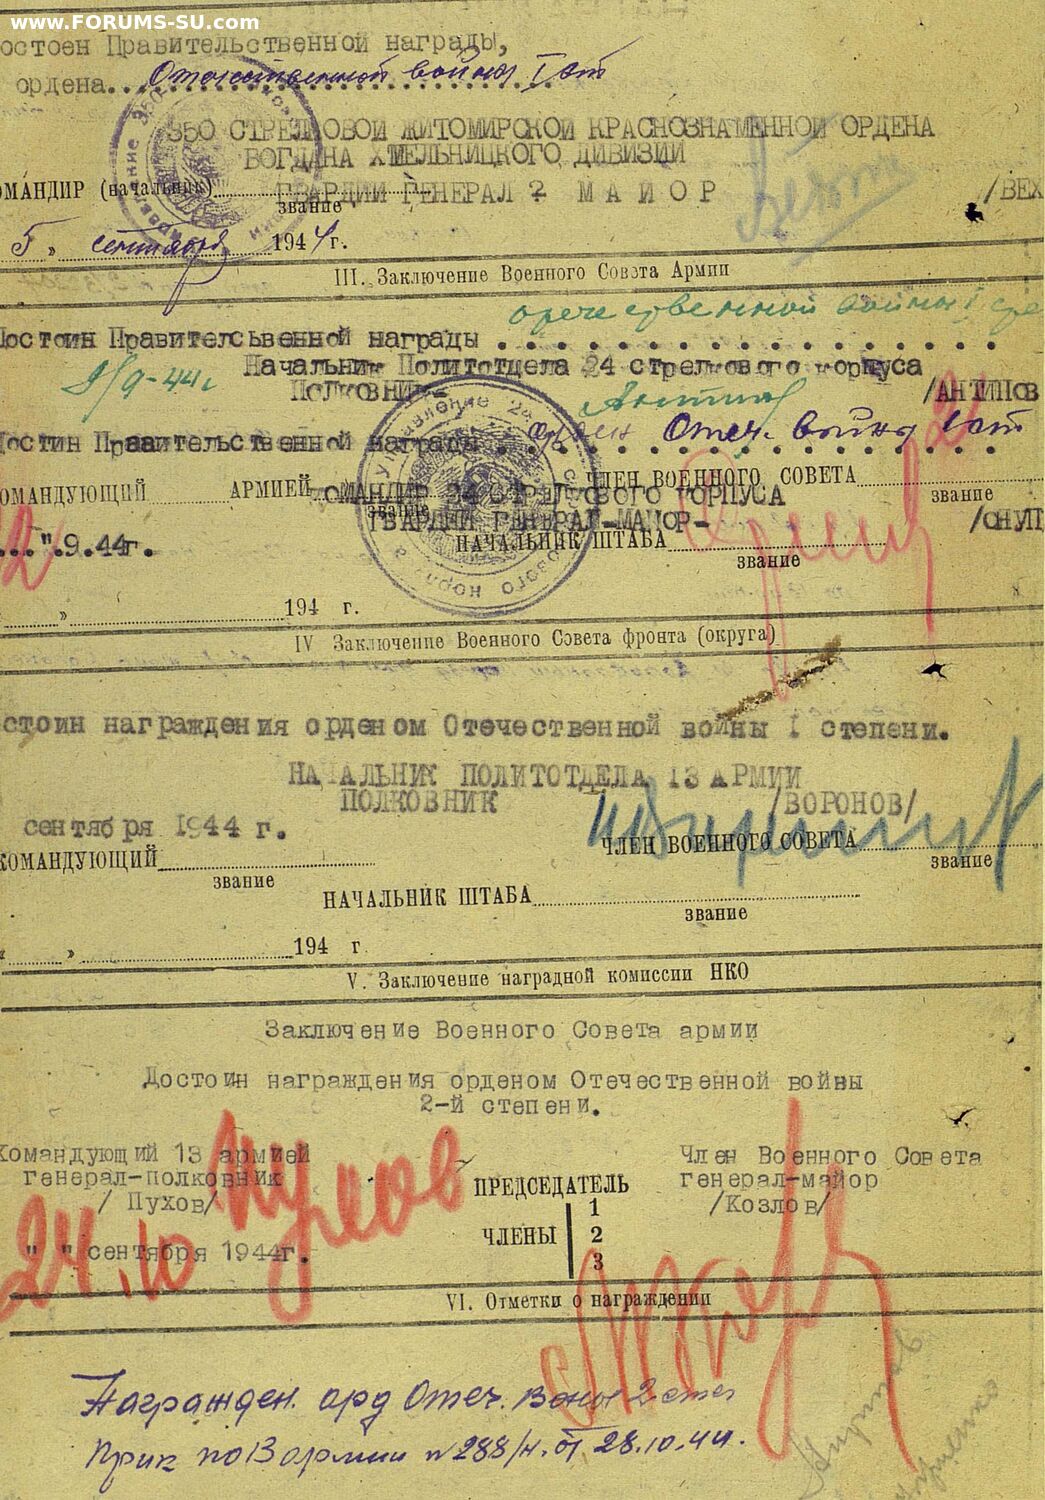 www.FORUMS-SU.com
остоен Правительственной награды,
ордена Отечественной войны I ст
350 СТРЕЛКОВОЙ ЖИТОМИРСКОЙ КРАСНОЗНАМЕННОЙ ОРДЕНА
БОГДАНА ХМЕЛЬНИЦКОГО ДИВИЗИИ
ОМАНДИР (начальник) ГВАРДИИ ГЕНЕРАЛ МАЙОР /ВЕХ
звание
5 " сентября 1944 г.
III. Заключение Военного Совета Армии
отечественной войны I сте
Достоин Правителсьвенной награды
Начальник Политотдела 24 стрелкового корпуса
9/9-44г
ПОЛКОВНИК- Антипов /АНТИПОВ
Достин Праавительственной награды орден Отеч. войны I ст
ОМАНДУЮЩИЙ АРМИЕЙ ЧЛЕН ВОЕННОГО СОВЕТА
КОМАНДИР 24 СТРЕЛКОВОГО КОРПУСА
звание звание
ГВАРДИИ ГЕНЕРАЛ-МАЙОР- /ОНУП
".9.44г. НАЧАЛЬНИК ШТАБА
звание
" 194 г.
IV Заключение Военного Совета фронта (округа)
стоин награждения орденом Отечественной войны I степени.
НАЧАЛЬНИК ПОЛИТОТДЕЛА 13 АРМИИ
ПОЛКОВНИК /ВОРОНОВ/
сентября 1944 г.
КОМАНДУЮЩИЙ ЧЛЕН ВОЕННОГО СОВЕТА
звание звание
НАЧАЛЬНИК ШТАБА
звание
" " 194 г.
V. Заключение наградной комиссии НКО
Заключение Военного Совета армии
Достоин награждения орденом Отечественной войны
2-й степени.
Командующий 13 армией Член Военного Совета
генерал-полковник генерал-майор
/ Пухов/ Пухов ПРЕДСЕДАТЕЛЬ /Козлов/
ЧЛЕНЫ 1
2
3
" " сентября 1944г.
24.10
VI. Отметки о награждении
Награжден. орд Отеч. Воны 2 степ
Прик по 13 армии N 288/н. от 28.10.44.